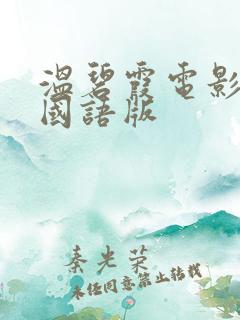 溫碧霞電影
國語版
秦光荣
未经同意禁止转载